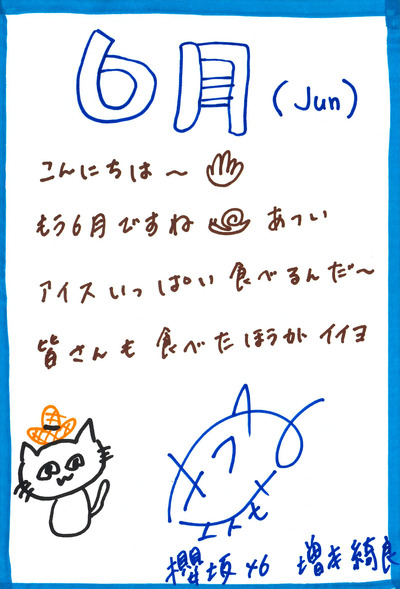 6月 (Jun)
こんにちは〜
もう6月ですね あつい
アイスいっぱい食べるんだ〜
皆さんも食べたほうがイイヨ
櫻坂46 増本綺良